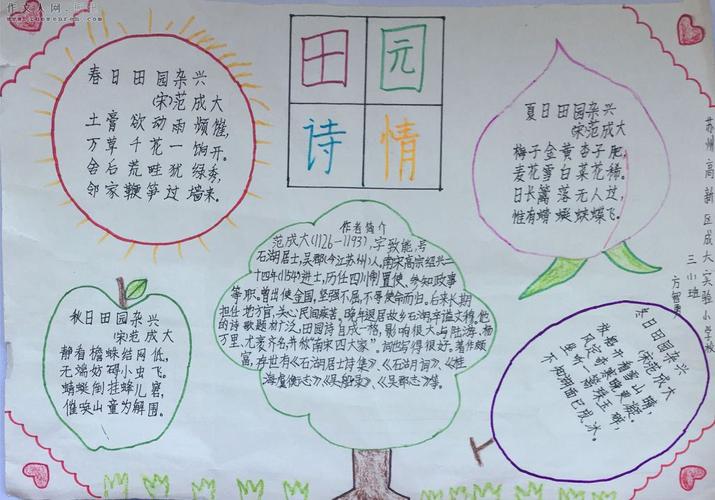 作文人网
田园
诗情
春日田园杂兴
(宋)范成大
土膏欲动雨频催,
万草千花一饷开。
舍后荒畦犹绿秀,
邻家鞭笋过墙来。
夏日田园杂兴
(宋)范成大
梅子金黄杏子肥,
麦花雪白菜花稀。
日长篱落无人过,
惟有蜻蜓蛱蝶飞。
秋日田园杂兴
(宋)范成大
静看檐蛛结网低,
无端妨碍小虫飞。
蜻蜓倒挂蜂儿窘,
催唤山童为解围。
作者简介
范成大(1126-1193),字致能,号
石湖居士,吴郡(今江苏州)人。南宋高宗绍兴二
十四年(1154)进士,历任四川制置使、参知政事
等职。曾出使金国,坚强不屈,不辱使命而归。后来长期
担任地方官,关心民间疾苦。晚年退居故乡石湖。
的诗歌题材广泛,田园诗自成一格,影响很大,与陆游、杨
万里、尤袤齐名,并称"南宋四大家"。词也写得很好。著作颇
富,存世有《石湖居士诗集》、《石湖词》、《桂
海虞衡志》、《吴船录》、《吴郡志》等。
冬日田园杂兴
(宋)范成大
放船开看雪山晴,
风定奇寒晚更凝。
坐听一篙珠玉碎,
不知湖面已成冰。
苏州高新区成大实验小学校
三小班